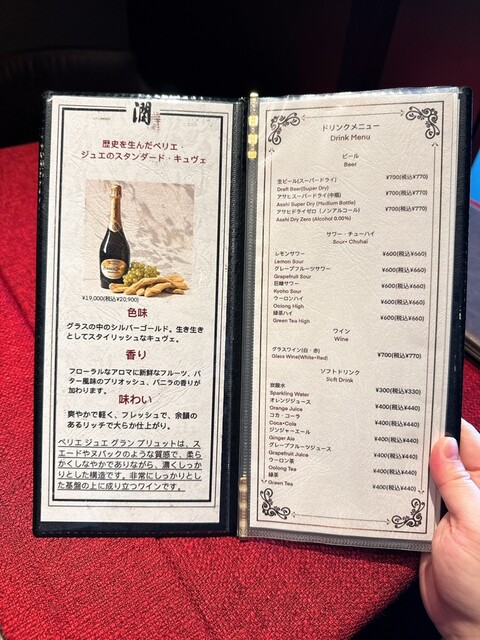 潤
歴史を生んだペリエ・
ジュエのスタンダード・キュヴェ
¥19,000(税込¥20,900)
色味
グラスの中のシルバーゴールド。生き生き
としてスタイリッシュなキュヴェ。
香り
フローラルなアロマに新鮮なフルーツ、バ
ター風味のブリオッシュ、バニラの香りが
加わります。
味わい
爽やかで軽く、フレッシュで、余韻の
あるリッチで大らか仕上がり。
ペリエ ジュエ グラン ブリュットは、ス
エードやヌバックのような質感で、柔ら
かくしなやかでありながら、濃くしっか
りとした構造です。非常にしっかりとし
た基盤の上に成り立つワインです。
ドリンクメニュー
Drink Menu
ビール
Beer
生ビール(スーパードライ) ¥700(税込¥770)
Draft Beer(Super Dry)
アサヒスーパードライ(中瓶) ¥700(税込¥770)
Asahi Super Dry (Medium Bottle)
アサヒドライゼロ（ノンアルコール） ¥700(税込¥770)
Asahi Dry Zero (Alcohol 0.00%)
サワー・チューハイ
Sour・Chuhai
レモンサワー ¥600(税込¥660)
Lemon Sour
グレープフルーツサワー ¥600(税込¥660)
Grapefruit Sour
巨峰サワー ¥600(税込¥660)
Kyoho Sour
ウーロンハイ ¥600(税込¥660)
Oolong High
緑茶ハイ ¥600(税込¥660)
Green Tea High
ワイン
Wine
グラスワイン(白・赤) ¥700(税込¥770)
Glass Wine(White・Red)
ソフトドリンク
Soft Drink
炭酸水 ¥300(税込¥330)
Sparkling Water
オレンジジュース ¥400(税込¥440)
Orange Juice
コカ・コーラ ¥400(税込¥440)
Coca・Cola
ジンジャーエール ¥400(税込¥440)
Ginger Ale
グレープフルーツジュース ¥400(税込¥440)
Grapefruit Juice
ウーロン茶 ¥400(税込¥440)
Oolong Tea
緑茶 ¥400(税込¥440)
Green Tea